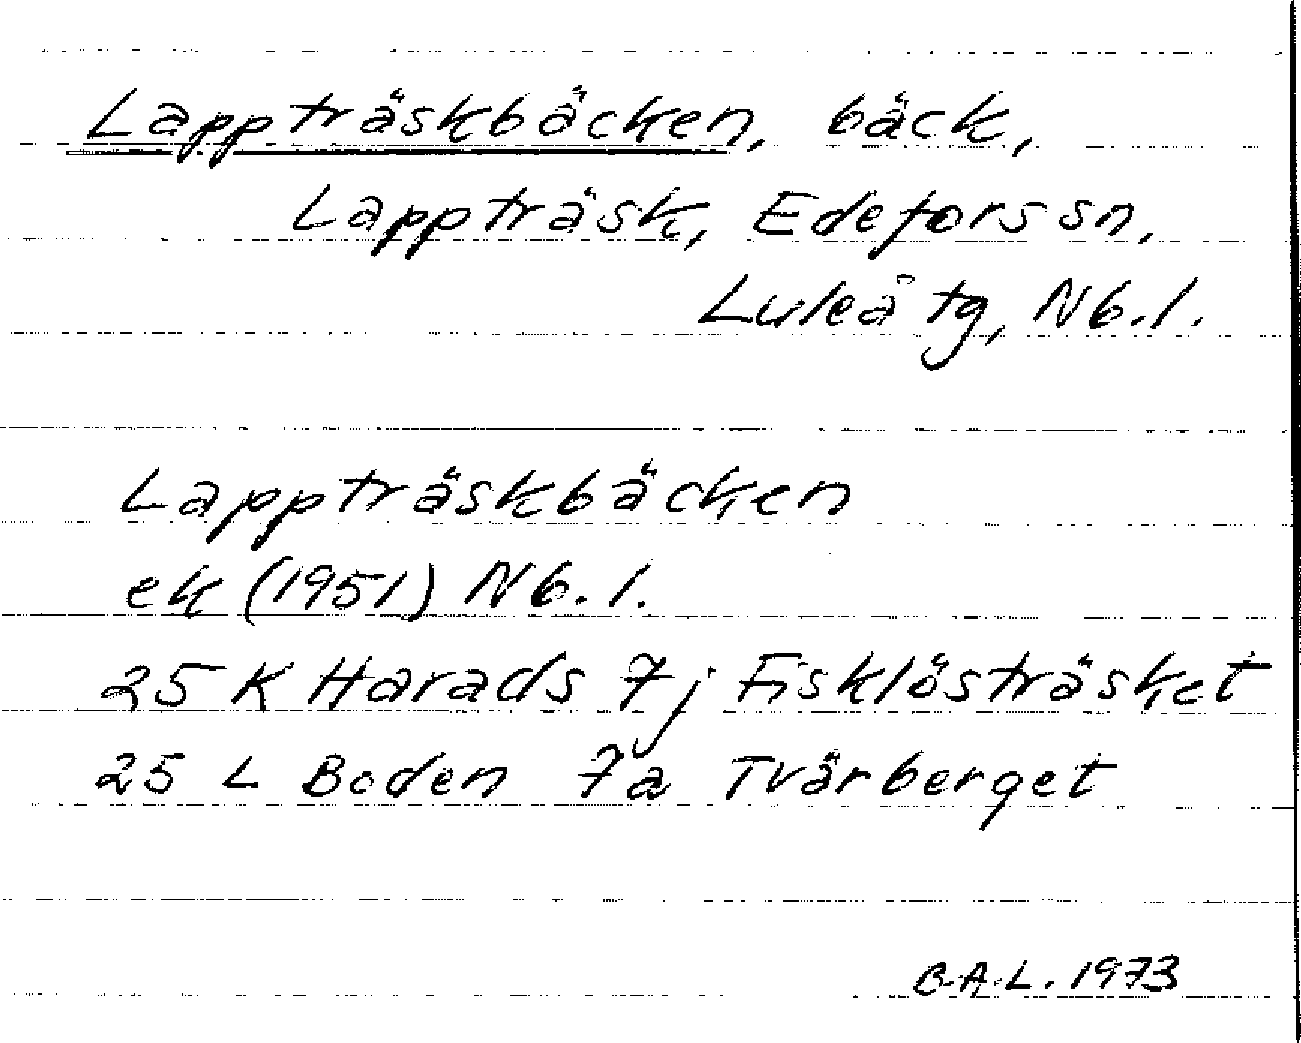 Lappträskbäcken, bäck,
Lappträsk, Edefors sn,
Luleå tg, Nb.l.
Lappträskbäcken
ek (1951) Nb.l.
25 K Harads 7j Fisklösträsket
25 L Boden 7a Tvärberget
B.A.L. 1973